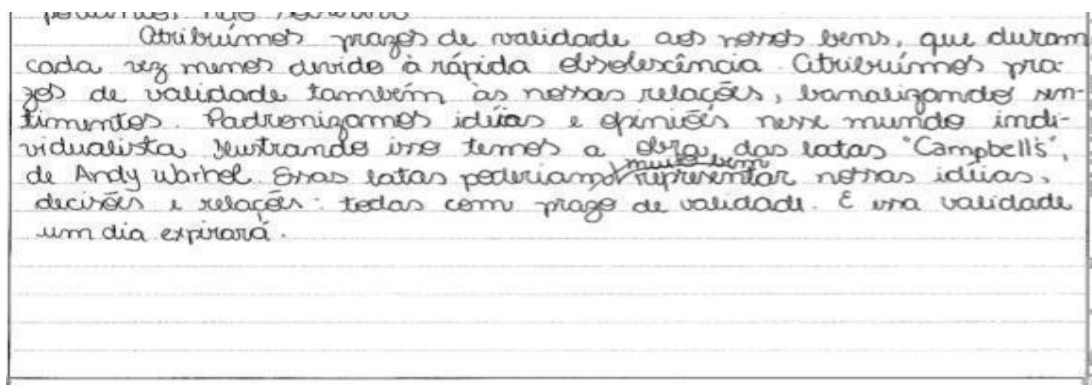 Atribuímos prazos de validade aos nossos bens, que duram
cada vez menos devido à rápida obsolescência. Atribuímos pra-
zos de validade também às nossas relações, banalizando sen-
timentos. Padronizamos idéias e opiniões nesse mundo indi-
vidualista. Ilustrando isso temos a obra das latas "Campbell's",
de Andy Warhol. Essas latas poderiam muito bem representar nossas idéias,
decisões e relações: todas com prazo de validade. E essa validade
um dia expirará.